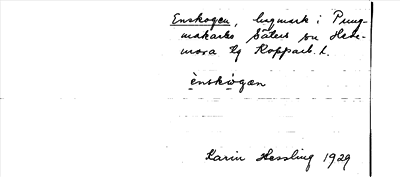 Enskogen, hygmark i Pung-
makarbo Säters sn Hede-
mora tg Kopparb. l.
ènskògæn
Karin Hessling 1929